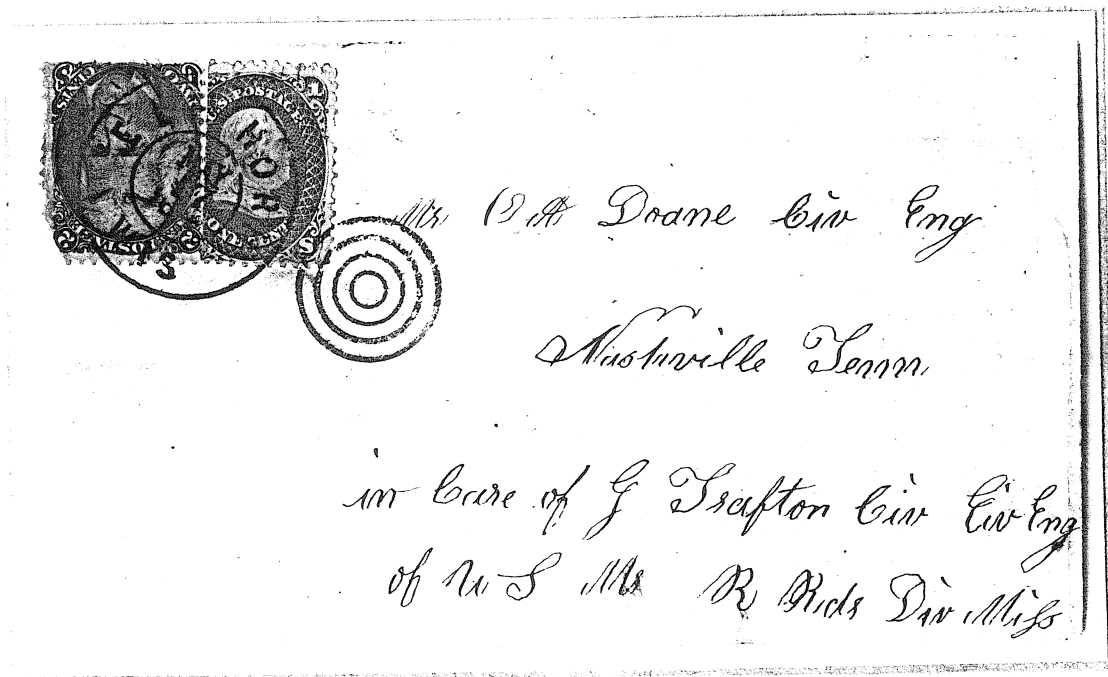 U.S. POSTAGE
ONE CENT
Mr D A Doane Civ Eng
Nashville Tenn.
in Care of G Trafton Civ Civ Eng
of U S M R Rds Div Miss